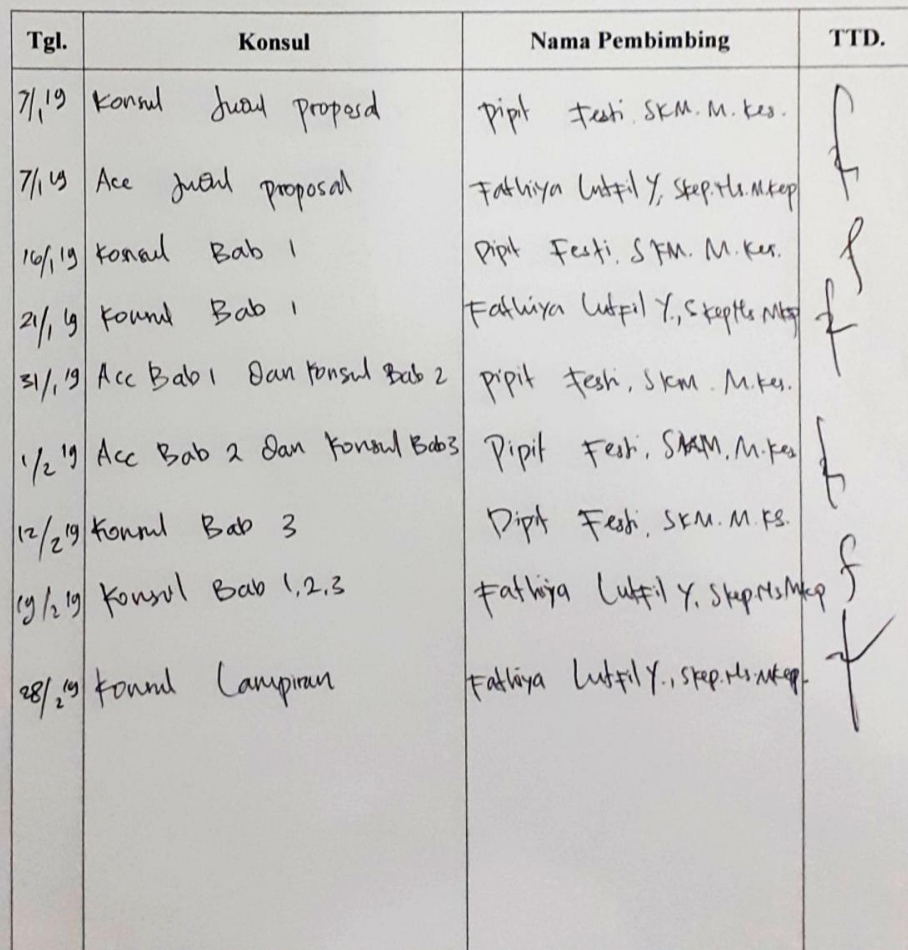 Tgl. Konsul Nama Pembimbing TTD.
7/1 19 Konsul Judul proposal Pipit Festi, SKM. M. Kes.
7/1 19 Acc Judul proposal Fathiya Lutfil Y, Skep.Ns.Mkep
16/1 19 Konsul Bab 1 Pipit Festi, SKM. M. Kes.
21/1 19 Konsul Bab 1 Fathiya Lutfil Y., SkepNs Mkep
31/1 19 Acc Bab 1 Dan Konsul Bab 2 Pipit Festi, SKM. M.Kes.
1/2 19 Acc Bab 2 Dan Konsul Bab3 Pipit Festi, SKM, M.Kes
12/2 19 Konsul Bab 3 Pipit Festi, SKM. M. KS.
19/2 19 Konsul Bab 1,2,3 Fathiya Lutfil Y, Skep.Ns Mkep
28/2 19 Konsul Lampiran Fathiya Lutfil Y., Skep.Ns.Mkep.